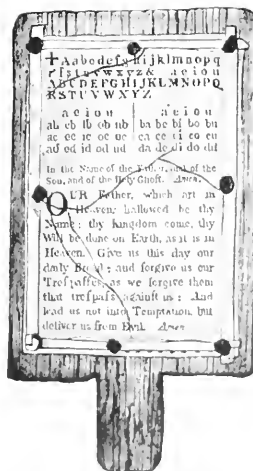 +Aabcdefghijklmnopq
rſstuvwxyz& a e i o u
ABCDEFGHIJKLMNOPQ
RSTUVWXYZ
a e i o u a e i o u
ab eb ib ob ub ba be bi bo bu
ac ec ic oc uc ca ce ci co cu
ad ed id od ud da de di do du
In the Name of the Father, and of the
Son, and of the Holy Ghoſt. Amen.
OUR Father, which art in
Heaven, hallowed be thy
Name; thy kingdom come, thy
Will be done on Earth, as it is in
Heaven. Give us this day our
daily Bread; and forgive us our
Treſpaſſes, as we forgive them
that treſpaſs againſt us: And
lead us not into Temptation, but
deliver us from Evil. Amen